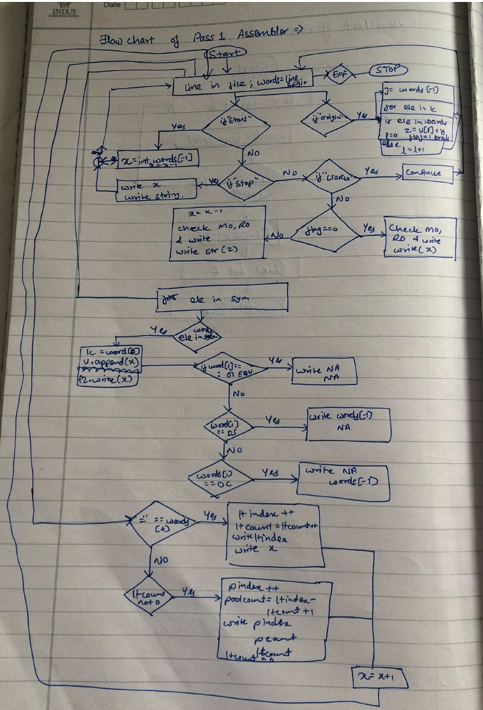 INDUS
Date
Flow chart of Pass 1 Assembler =>
Start
Line in file ; words = line.split
EOF
STOP
if "Start"
if "origin"
Yes
NO
x = int words[-1]
j = words[-1]
for ele in k
if ele in words
z = v[l] + y
flag = 1 break
l=0 else
l = l+1
write x
write string.
Yes
if "Stop"
NO
if "LTORG"
Yes
Continue
NO
x = x-1
check MO, RO
& write
write str(z)
NO
flag==0
Yes
Check MO,
RO & write
write(x)
for ele in sym
Yes
words
ele in
k = word[0]
v.append(x)
f2.write(x)
if word[1]==
: or EQU
Yes
write NA
NA
NO
word[1]
== DS
Yes
write words[-1]
NA
NO
words[1]
== DC
Yes
write NA
words[-1]
"=" == words
[0]
Yes
lt index ++
lt count = ltcount++
write ltindex
write x
NO
ltcount
not 0
Yes
pindex ++
poolcount = ltindex -
ltcount +1
write pindex
pcount
ltcount
ltcount = 0
x = x+1